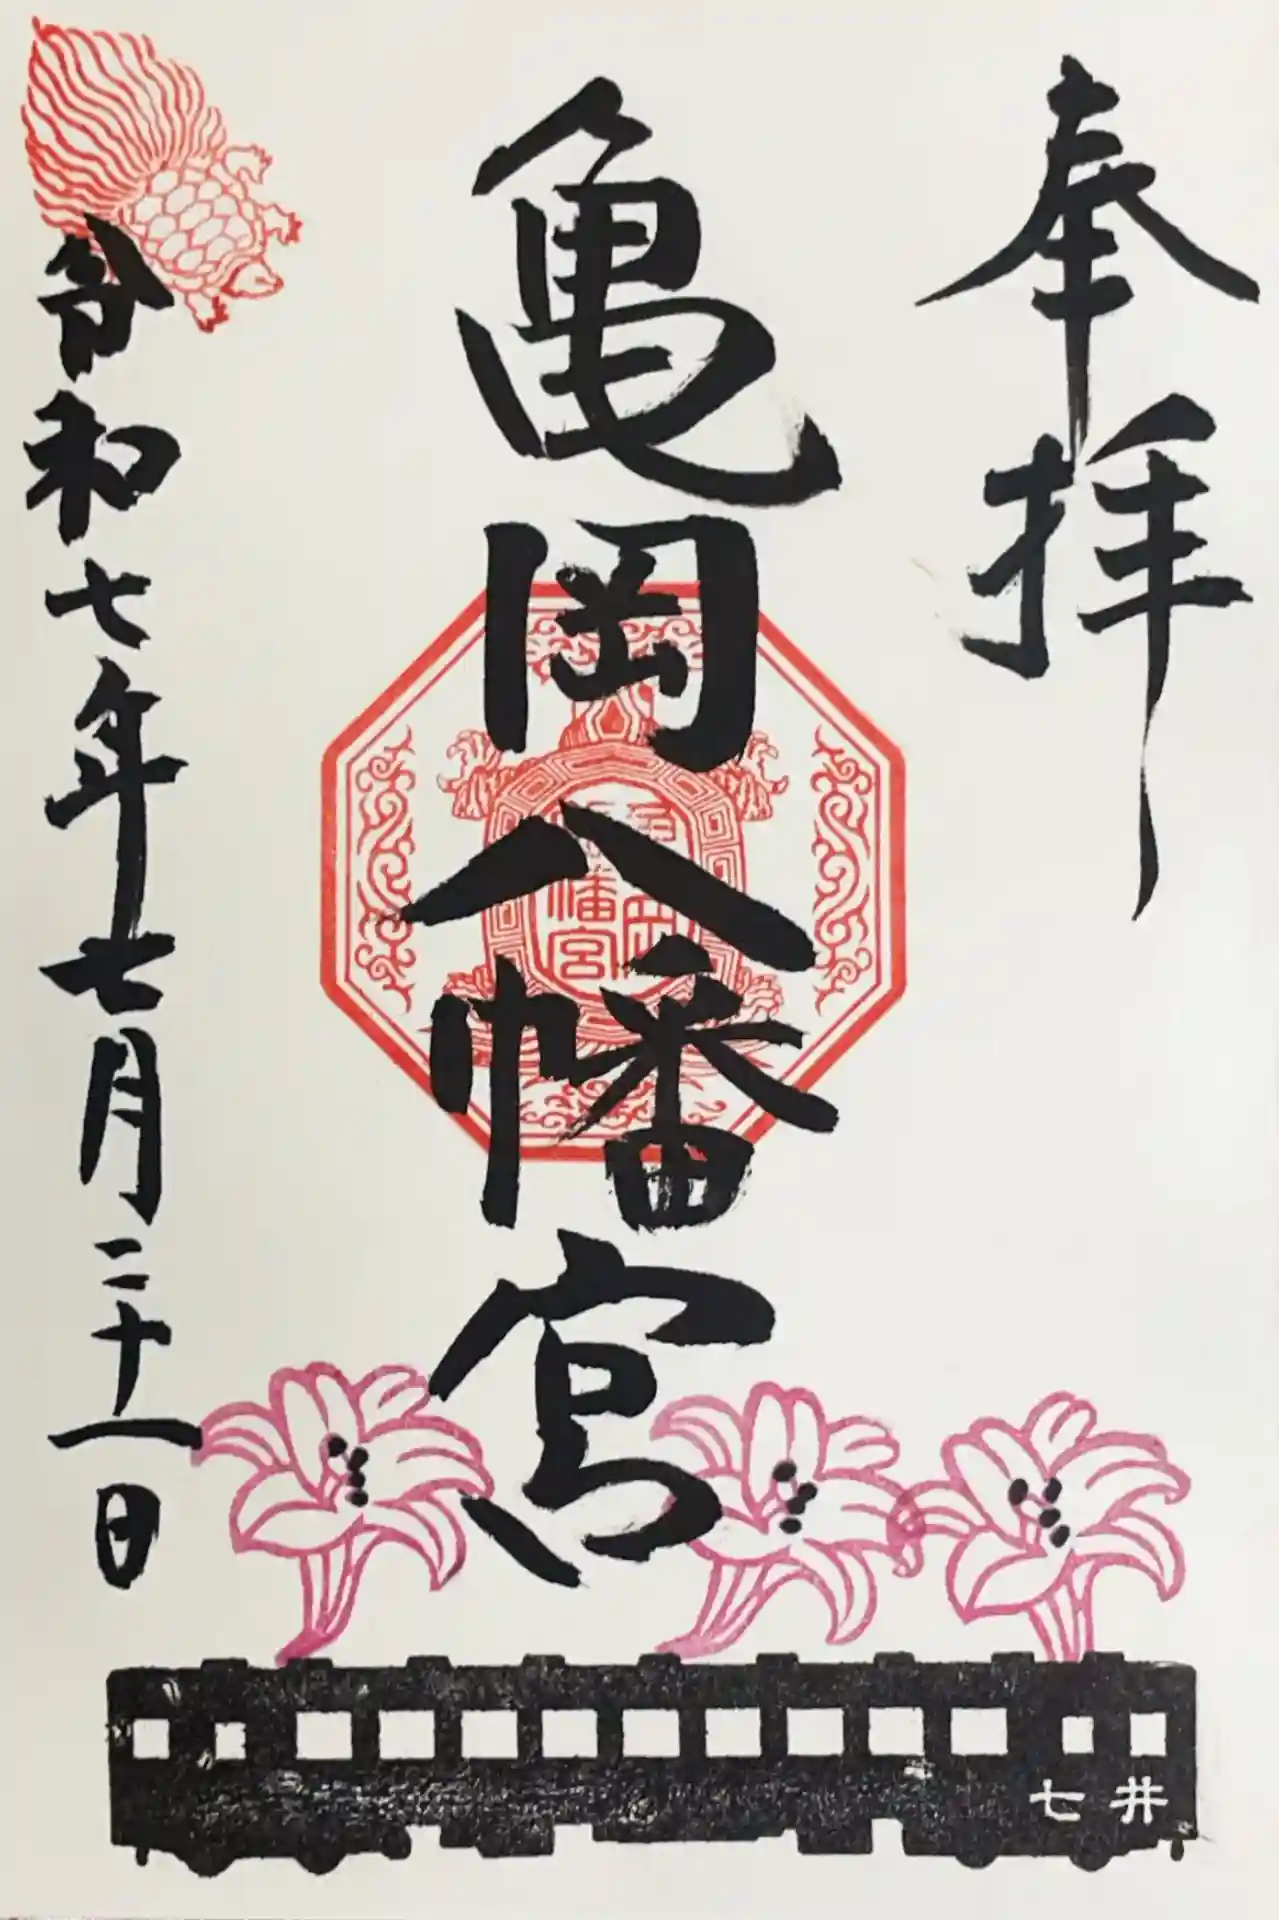 奉拝
亀岡八幡宮
令和七年七月二十一日
八幡宮
亀岡
七井